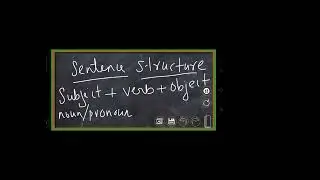 Sentence Structure
Subject + verb + object
noun/pronoun